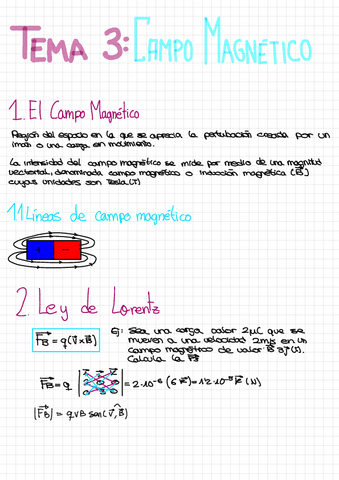 TEMA 3: CAMPO MAGNÉTICO
1. El Campo Magnético
Región del espacio en la que se aprecia la pertubación casada por un
imán o una carga en movimiento.
La intensidad del campo magnético se mide por medio de una magnitud
vectorial, denominada campo magnético o inducción magnética (B⃗)
cuyas unidades son Tesla (T)
1.1 Líneas de campo magnético
2. Ley de Lorentz
F⃗B = q(v⃗ x B⃗)
Ej: Sea una carga valor 2μC que se
mueven a una velocidad 2m/s en un
campo magnético de valor B⃗ 3j⃗ (T).
Calcula la F⃗B
F⃗B = q = 2·10⁻⁶ (6 k⃗) = 12·10⁻⁶ k⃗ (N)
|F⃗B| = q v B sen(v⃗, B⃗)